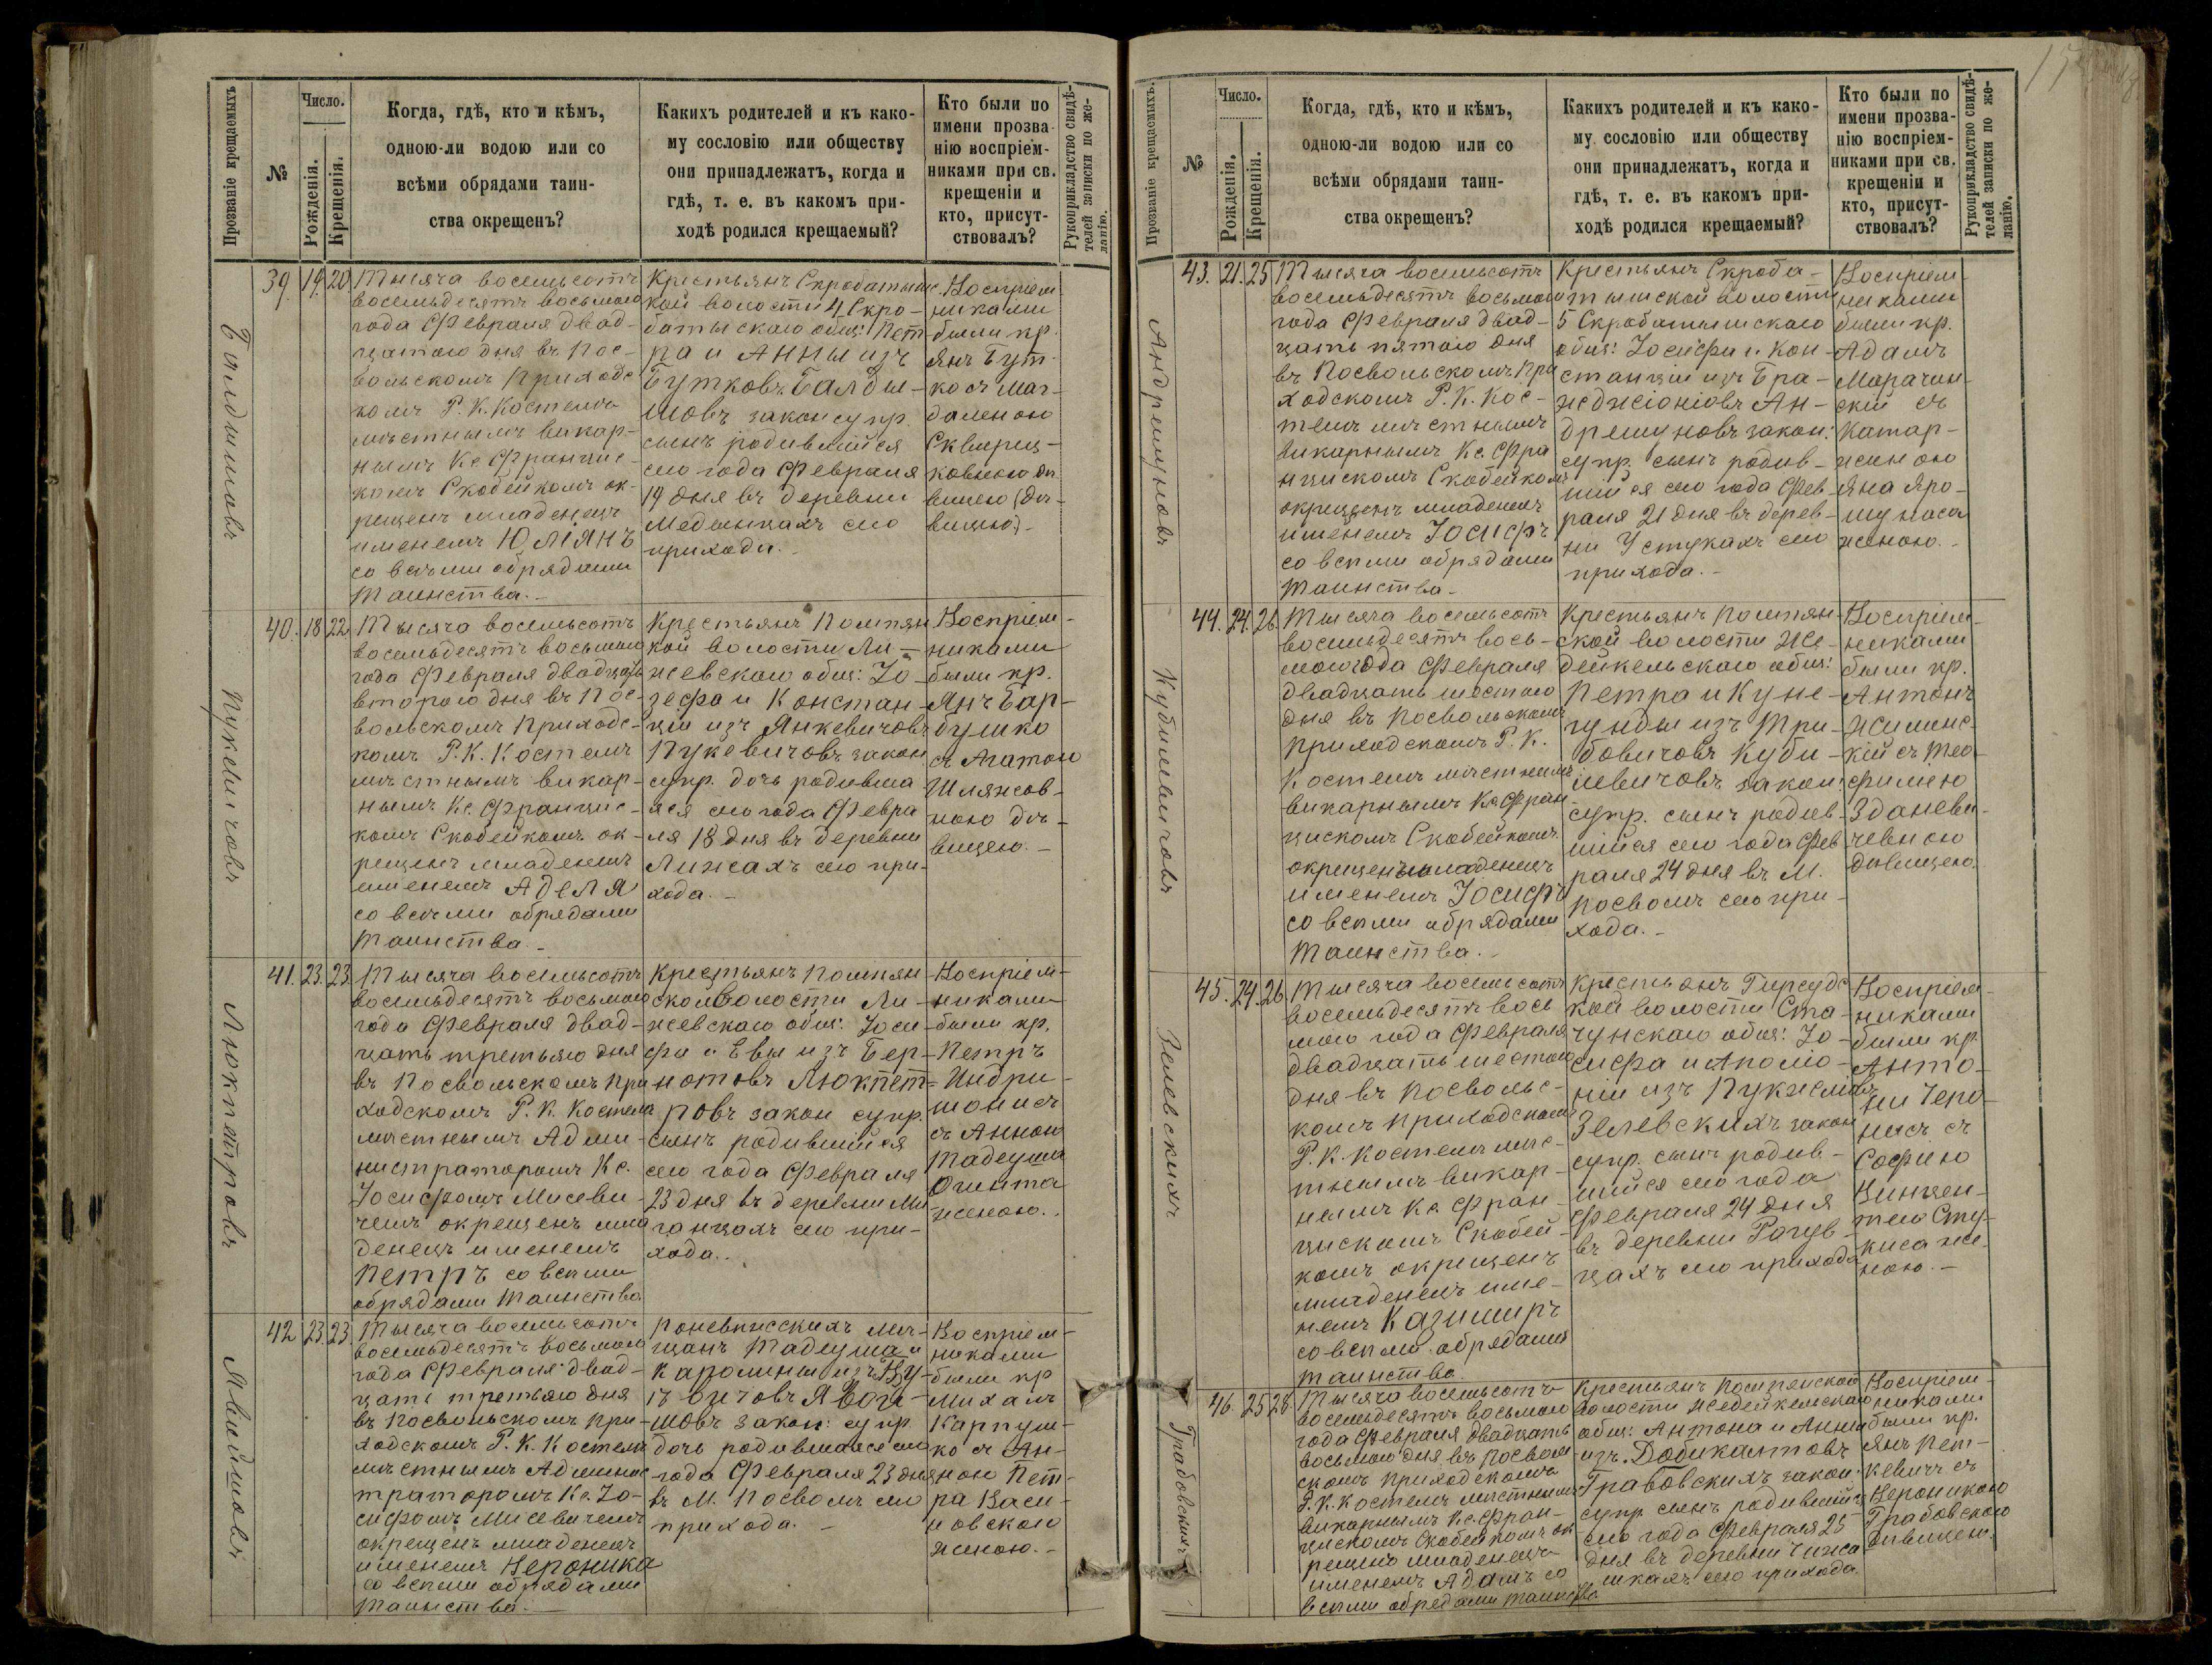 Прозваніе крещаемыхъ
№
Число.
Рожденія.
Крещенія.
Когда, гдѣ, кто и кѣмъ,
одною-ли водою или со
всѣми обрядами таин-
ства окрещенъ?
Какихъ родителей и къ како-
му сословію или обществу
они принадлежатъ, когда и
гдѣ, т. е. въ какомъ при-
ходѣ родился крещаемый?
Кто были по
имени прозва-
нію воспріем-
никами при св.
крещеніи и
кто, присут-
ствовалъ?
Рукоприкладство свидѣ-
телей записки по же-
ланію.
Балдышовъ
39. 19. 20
Тысяча восемьсотъ
восемьдесятъ восьмаго
года Февраля двад-
цатаго дня въ Пос-
вольскомъ Приходс-
комъ Р. К. Костелѣ
мѣстнымъ викар-
нымъ Кс. Францис-
комъ Скобейкомъ ок-
рещенъ младенецъ
именемъ Юліянъ
со всѣми обрядами
Таинства.
Крестьянъ Скробатышс-
кой волости 4 Скро-
батыскаго общ: Пет-
ра и Анны изъ
Бутковъ Балды-
шовъ закон супр.
сынъ родившійся
сего года Февраля
19 дня въ деревни
сего
прихода.
Воспріем
никами
были кр.
Янъ Бут-
ко съ Маг-
даленою
дѣ-
вицею
Пукевичовъ
40. 18 22
Тысяча восемьсотъ
восемьдесятъ восьмаго
года Февраля двадцать
втораго дня въ Пос-
вольскомъ Приходс-
комъ Р. К. Костелѣ
мѣстнымъ викар-
нымъ Кс. Францис-
комъ Скобейкомъ ок-
рещенъ младенецъ
именемъ Аделя
со всѣми обрядами
Таинства.
Крестьянъ Помпян
кой волости Ли-
жевскаго общ: Іо-
зефа и Констан-
ціи изъ Янкевичовъ
Пукевичовъ закон
супр. дочь родивша
яся сего года Февра
ля 18 дня въ деревни
Лижахъ сего при-
хода.
Воспріем-
никами
были кр.
Янъ Бар-
бушко
съ Агатою
Шляжов-
ною дѣ-
вицею.
Люкпетровъ
41. 23. 23
Тысяча восемьсотъ
восемьдесятъ восьмаго
года Февраля двад-
цать третьяго дня
въ Посвольскомъ При
ходскомъ Р. К. Костелѣ
мѣстнымъ Адми-
нистраторомъ Кс.
Іосифомъ Мисеви-
чемъ окрещенъ мла
денецъ именемъ
Петръ со всѣми
обрядами Таинства
Крестьянъ Помпян
ской волости Ли-
жевскаго общ: Іоси-
фа и Евы изъ Бер-
нотовъ Люкпет-
ровъ закон супр.
сынъ родившійся
сего года Февраля
23 дня въ деревни Ми
ганцахъ сего при-
хода.
Воспріем-
никами
были кр.
Петръ
Индри-
шонисъ
съ Анною
Тадеуша
Огинта
женою.
Явойшовъ
42 23. 23
Тысяча восемьсотъ
восемьдесятъ восьмаго
года Февраля двад-
цать третьяго дня
въ Посвольскомъ При-
ходскомъ Р. К. Костелѣ
мѣстнымъ Админис
траторомъ Кс. Іо-
сифомъ Мисевичемъ
окрещенъ младенецъ
именемъ Вероника
со всѣми обрядами
Таинства.
Поневѣжскихъ мѣ-
щанъ Тадеуша и
Каролины изъ
шовъ закон: супр.
дочь родившаяся сего
года Февраля 23 дня
въ М. Посволѣ сего
прихода.
Воспріем-
никами
были кр
Михалъ
Карпуш-
ко съ Ан-
ною Пет-
ра Васи-
новскаго
женою.
Прозваніе крещаемыхъ.
№
Число.
Рожденія.
Крещенія.
Когда, гдѣ, кто и кѣмъ,
одною-ли водою или со
всѣми обрядами таин-
ства окрещенъ?
Какихъ родителей и къ како-
му сословію или обществу
они принадлежатъ, когда и
гдѣ, т. е. въ какомъ при-
ходѣ родился крещаемый?
Кто были по
имени прозва-
нію воспріем-
никами при св.
крещеніи и
кто, присут-
ствовалъ?
Рукоприкладство свидѣ-
телей записки по же-
ланію.
Андрешуновъ
43. 21. 25
Тысяча восемьсотъ
восемьдесятъ восьмаго
года Февраля двад-
цать пятаго дня
въ Посвольскомъ При
ходскомъ Р. К. Кос-
телѣ мѣстнымъ
викарнымъ Кс. Фра
нцискомъ Скобейкомъ
окрещенъ младенецъ
именемъ Іосифъ
со всѣми обрядами
Таинства.
Крестьянъ Скроба-
тышской волости
5 Скробатышскаго
общ: Іосифа и Кон-
станціи изъ Бра-
жджіоніовъ Ан-
дрешуновъ закон:
супр. сынъ родив-
шійся сего года Фев-
раля 21 дня въ дерев-
ни Устукахъ сего
прихода.
Воспріем-
никами
были кр.
Адамъ
Марачин-
скій съ
Катар-
жиною
Яна Яро-
шунаса
женою.
Кубилевичовъ
44. 24. 26.
Тысяча восемьсотъ
восемьдесятъ вось-
маго года Февраля
двадцать шестаго
дня въ Посвольскомъ
приходскомъ Р. К.
Костелѣ мѣстнымъ
викарнымъ Кс. Фран
цискомъ Скобейкомъ
окрещенъ младенецъ
именемъ Іосифъ
со всѣми обрядами
Таинства.
Крестьянъ Помпян-
ской волости Же-
дейкельскаго общ:
Петра и Куне-
гунды изъ Три-
бовичовъ Куби-
левичовъ закон:
супр. сынъ родив-
шійся сего года Фев
раля 24 дня въ М.
Посволѣ сего при-
хода.
Воспріем-
никами
были кр.
Антонъ
Жилинс-
кій съ Тео-
филею
Зданеви-
чевною
дѣвицею.
Зелевскихъ
45. 24. 26
Тысяча восемьсотъ
восемьдесятъ вось
маго года Февраля
двадцать шестаго
дня въ Посвольс-
комъ приходскомъ
Р. К. Костелѣ мѣс-
тнымъ викар-
нымъ Кс. Фран-
цискомъ Скобей-
комъ окрещенъ
младенецъ име-
немъ Казимиръ
со всѣми обрядами
таинства.
Крестьянъ Гирсудс
кой волости Ста-
чунскаго общ: Іо-
сифа и Аполо-
ніи изъ
Зелевскихъ закон
супр. сынъ родив-
шійся сего года
Февраля 24 дня
въ деревни Рагув-
цахъ сего прихода
Воспріем-
никами
были кр.
Анто-
ни Черо-
нисъ съ
Софіею
Винцен-
таго Сту-
киса же-
ною.
Грабовскихъ
46. 25 28.
Тысяча восемьсотъ
восемьдесятъ восьмаго
года Февраля двадцать
восьмаго дня въ Посволь
скомъ приходскомъ
Р. К. Костелѣ мѣстнымъ
викарнымъ Кс. Фран-
цискомъ Скобейкомъ ок
рещенъ младенецъ
именемъ Адамъ со
всѣми обрядами таинства
Крестьянъ Помпянской
волости Жедейкельскаго
общ: Антона и Анны
изъ Добикайтовъ
Грабовскихъ закон:
супр. сынъ родившійся
сего года Февраля 25
дня въ деревни Чижа
шкахъ сего прихода
Воспріем-
никами
были кр.
Янъ Пет-
кевичъ съ
Вероникою
Грабовскою
дѣвицею.